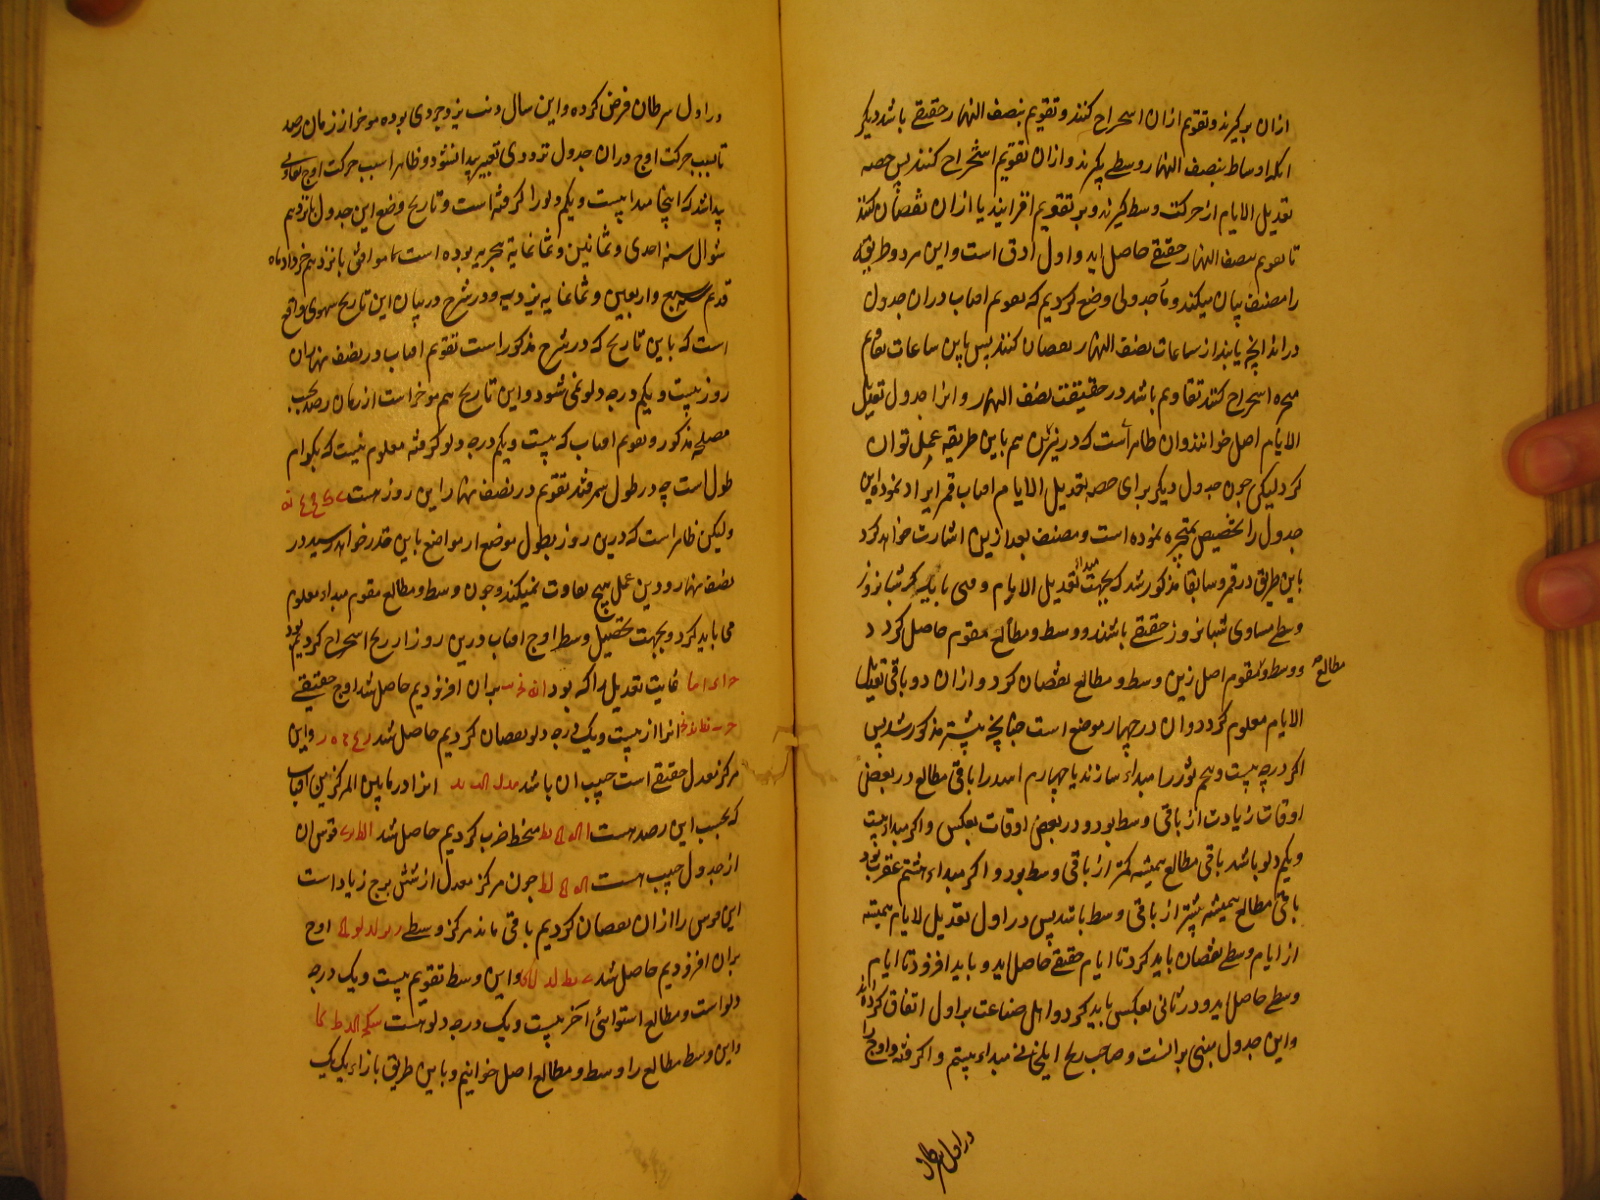 ازان برگیرند و تقویم ازان استخراج کنند و تقویم بنصف النهار حقیقے باشد دیگر
انکه اوساط بنصف النهار وسطے گیرند و ازان تقویم استخراج کنند پس حصه
تعدیل الایام از حرکت وسط گیرند و بر تقویم افزایند یا ازان نقصان کنند
تا تقویم بنصف النهار حقیقے حاصل اید و اول ادق است و این هر دو طریقه
را مصنف بیان میکند و ما جدولی وضع کردیم که تقویم افتاب دران جدول
در اند انچه یابند از ساعات نصف النهار نقصان کنند پس باین ساعات تقاویم
استخراج کنند تقاویم باشد در حقیقت نصف النهار و انرا جدول تعدیل
الایام اصل خوانند و ان ظاهر است که در نیرین هم باین طریقه عمل توان
کرد لیکن چون جدول دیگر برای حصه تعدیل الایام افتاب قمر ایراد نموده این
جدول را تخصیص بمتحیره نموده است و مصنف بعد ازین اشارت خواهد کرد
باین طریق در قمر و سابقا مذکور شد که بجهت مبداء تعدیل الایام وقتی باید که شبانروز
وسطے مساوی شبانروز حقیقے باشند و وسط و مطالع مقوم حاصل کرد د
و وسط و مطالع مقوم اصل زین وسط و مطالع نقصان کرد و ازان دو باقی تعدیل
الایام معلوم کردد و ان در چهار موضع است چنانچه پیشتر مذکور شد پس
اگر درجه بیست و پنجم ثور را مبداء سازند یا چهارم اسد را باقی مطالع در بعضی
اوقات زیادت از باقی وسط بود و در بعضی اوقات بعکس و اگر مبداء بیست
ویکم دلو باشد باقی مطالع همیشه کمتر از باقی وسط بود و اگر مبداء هشتم عقرب بود
باقی مطالع همیشه بیشتر از باقی وسط باشد پس در اول تعدیل لایام همیشه
از ایام وسطے نقصان باید کرد تا ایام حقیقے حاصل اید و باید افزود تا ایام
وسطے حاصل اید و در ثانی بعکس باید کرد و اهل صناعت بر اول اتفاق کرده اند
و این جدول مبنی برانست و صاحب زیج ایلخانی مبداء بیستم و اگرفته و اوج را
در اول سرطان
در اول سرطان فرض کرده و این سال یزدجردی بوده موخر از زمان رصد
تا بسبب حرکت اوج دران جدول تردودی تغییر پیدا نشود و ظاهرا بسبب حرکت اوج تفاوتی
پیدا شد که اینجا مبدا بیست ویکم دلو را گرفته است و تاریخ وضع این جدول پانزدهم
شوال سنه احدی و ثمانین و ثمانمایة هجریه بوده است موافق پانزدهم خرداد ماه
قدیم سبع و اربعین و ثمانمایه یزدیه و در شرح در بیان این تاریخ سهوی واقع
است که باین تاریخ که در شرح مذکور است تقویم افتاب در نصف نهار ان
روز بیست ویکم درجه دلو نمی شود و این تاریخ هم موخر است از زمان رصد بحسب
مصلحه مذکور و تقویم افتاب که بیست ویکم درجه دلو گرفته معلوم نیست که بکدام
طول است چه در طول سمرقند تقویم در نصف نهار این روز هست
ولیکن ظاهر است که درین روز بطول موضع از مواضع باین قدر خواهد رسید در
نصف نهار و درین عمل هیچ تفاوت نمیکند و چون وسط و مطالع مقوم مبداء معلوم
می باید کرد و بجهت تحصیل وسط اوج افتاب درین روز از زیج استخراج کردیم بود
غایت تعدیل را که بود بران افزودیم حاصل شد اوج حقیقے
انرا از بیست ویک درجه دلو نقصان کردیم حاصل شد و این
مرکز معدل حقیقے است جیب ان باشد انرا در مابین المرکزین افتاب
که بحسب این رصد هست منحط ضرب کردیم حاصل شد قوس ان
از جدول جیب هست چون مرکز معدل از شش برج زیاد است
این قوس را ازان نقصان کردیم باقی ماند مرکز وسطے اوج
بران افزودیم حاصل شد و این وسط تقویم بیست ویک درجه
دلو است و مطالع استوائی اخر بیست ویک درجه دلو هست
و این وسط مطالع را وسط و مطالع اصل خوانیم و باین طریق بازاء یک یک